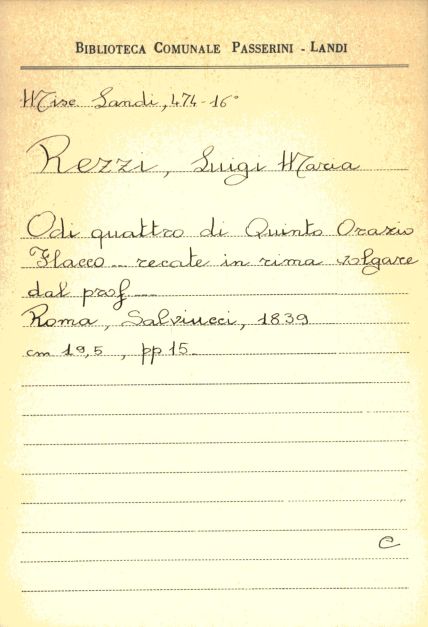 BIBLIOTECA COMUNALE PASSERINI - LANDI
Misc Landi, 474-16°
Rezzi, Luigi Maria
Odi quattro di Quinto Orazio
Flacco... recate in rima volgare
dal prof....
Roma, Salviucci, 1839
cm 19,5, pp 15.
C